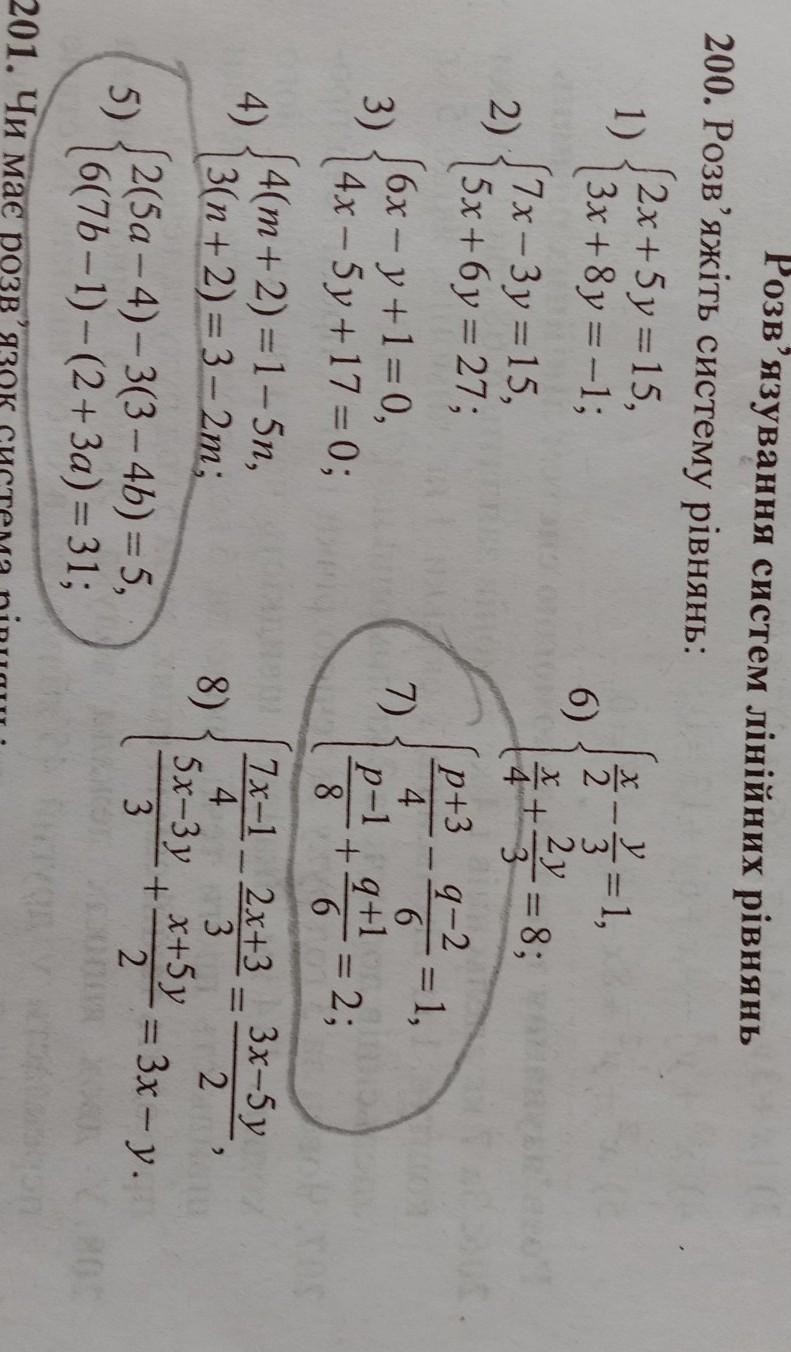 Розв’язування систем лінійних рівнянь
200. Розв’яжіть систему рівнянь:
1) {2x + 5y = 15,
3x + 8y = −1;
2) {7x − 3y = 15,
5x + 6y = 27;
3) {6x − y + 1 = 0,
4x − 5y + 17 = 0;
4) {4(m + 2) = 1 − 5n,
3(n + 2) = 3 − 2m;
5) {2(5a − 4) − 3(3 − 4b) = 5,
6(7b − 1) − (2 + 3a) = 31;
6) {x/2 − y/3 = 1,
x/4 + 2y/3 = 8;
7) {p+3/4 − q−2/6 = 1,
p−1/8 + q+1/6 = 2;
8) {7x−1/4 − 2x+3/3 = 3x−5y/2,
5x−3y/3 + x+5y/2 = 3x − y.
201. Чи має розв’язок система